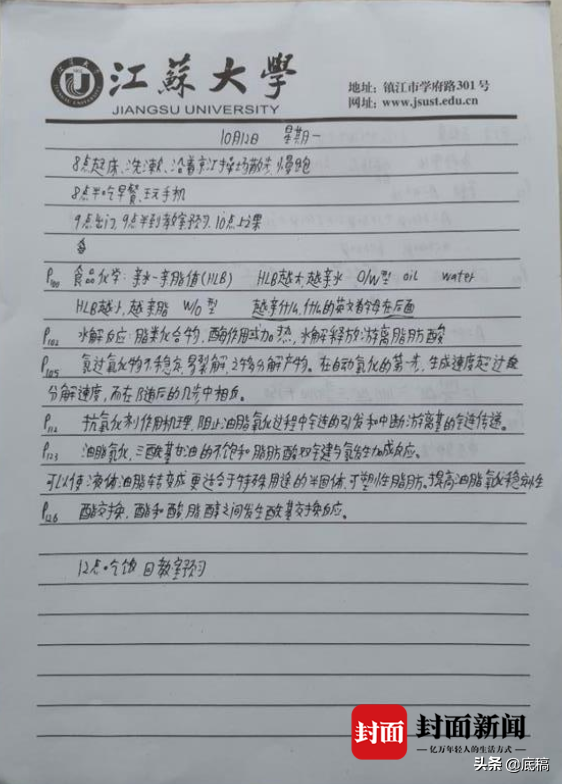 江蘇大學
JIANGSU UNIVERSITY
地址: 镇江市学府路301号
网址: www.jsust.edu.cn
10月12日 星期一
8点起床、洗漱、沿着京江操场散步、慢跑
8点半吃早餐、玩手机
9点出门, 9点半到教室预习. 10点上课
P100 食品化学: 亲水-亲脂值(HLB) HLB越大,越亲水 O/W型 oil water
HLB越小,越亲脂 W/O型 越亲什么,什么的英文首字母在后面
P102 水解反应: 脂类化合物, 酶作用或加热, 水解释放游离脂肪酸
P105 氢过氧化物不稳定,易裂解,产物分解产物。在自动氧化的第一步,生成速度超过
分解速度,而在随后的几步中相反。
P112 抗氧化剂作用机理,阻止油脂氧化过程中的引发和中断游离基的传递。
P123 油脂氢化,三酰基甘油的不饱和脂肪酸双键与氢发生加成反应。
可以使液体油脂转变成更适合于特殊用途的半固体,可塑性脂肪。提高油脂氧化稳定性
P126 酯交换,酯和酸、脂、醇之间发生酰基交换反应。
12点吃饭 回教室预习
封面 封面新闻
亿万年轻人的生活方式
头条 @底稿